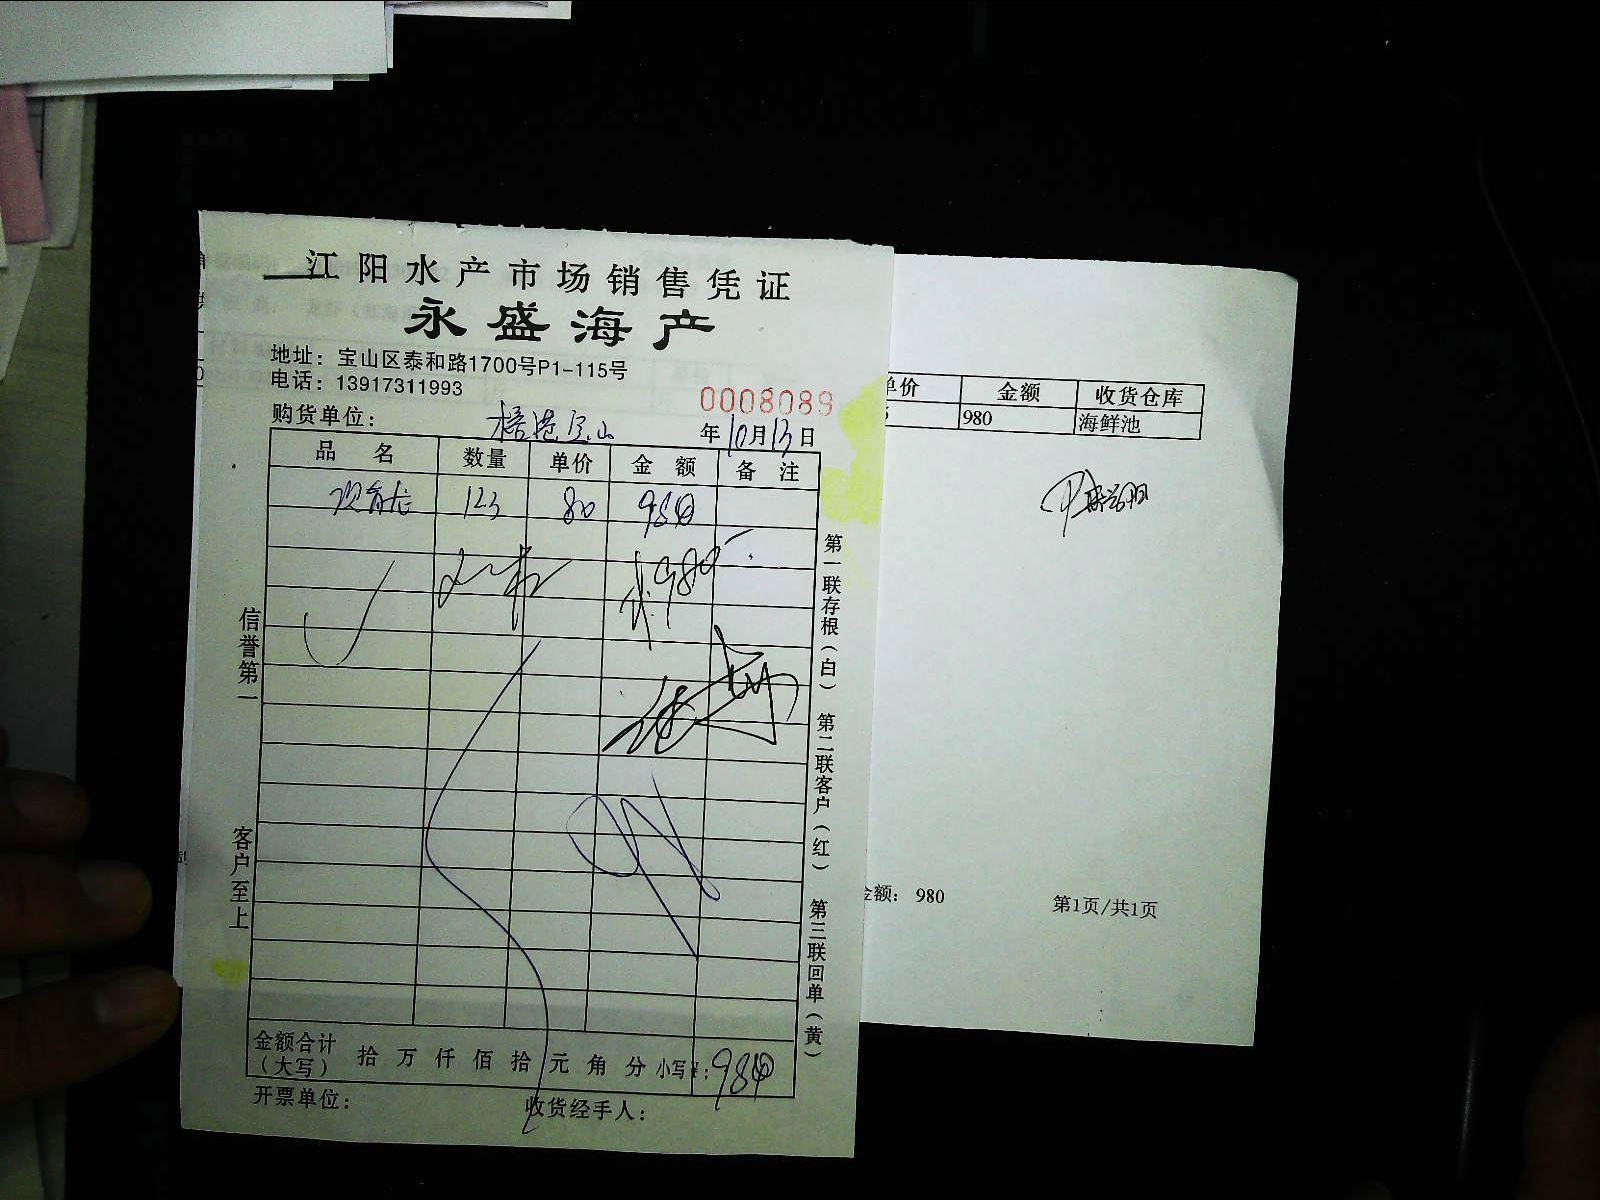 江阳水产市场销售凭证
永盛海产
地址：宝山区泰和路1700号P1-115号
电话：13917311993
0008089
购货单位：
年10月13日
品 名 数量 单价 金 额 备 注
123 80 984
代 980
信誉第一
客户至上
第一联存根（白） 第二联客户（红） 第三联回单（黄）
金额合计（大写） 拾 万 仟 佰 拾 元 角 分 小写¥：984
开票单位： 收货经手人：
单价 金额 收货仓库
5 980 海鲜池
金额： 980 第1页/共1页